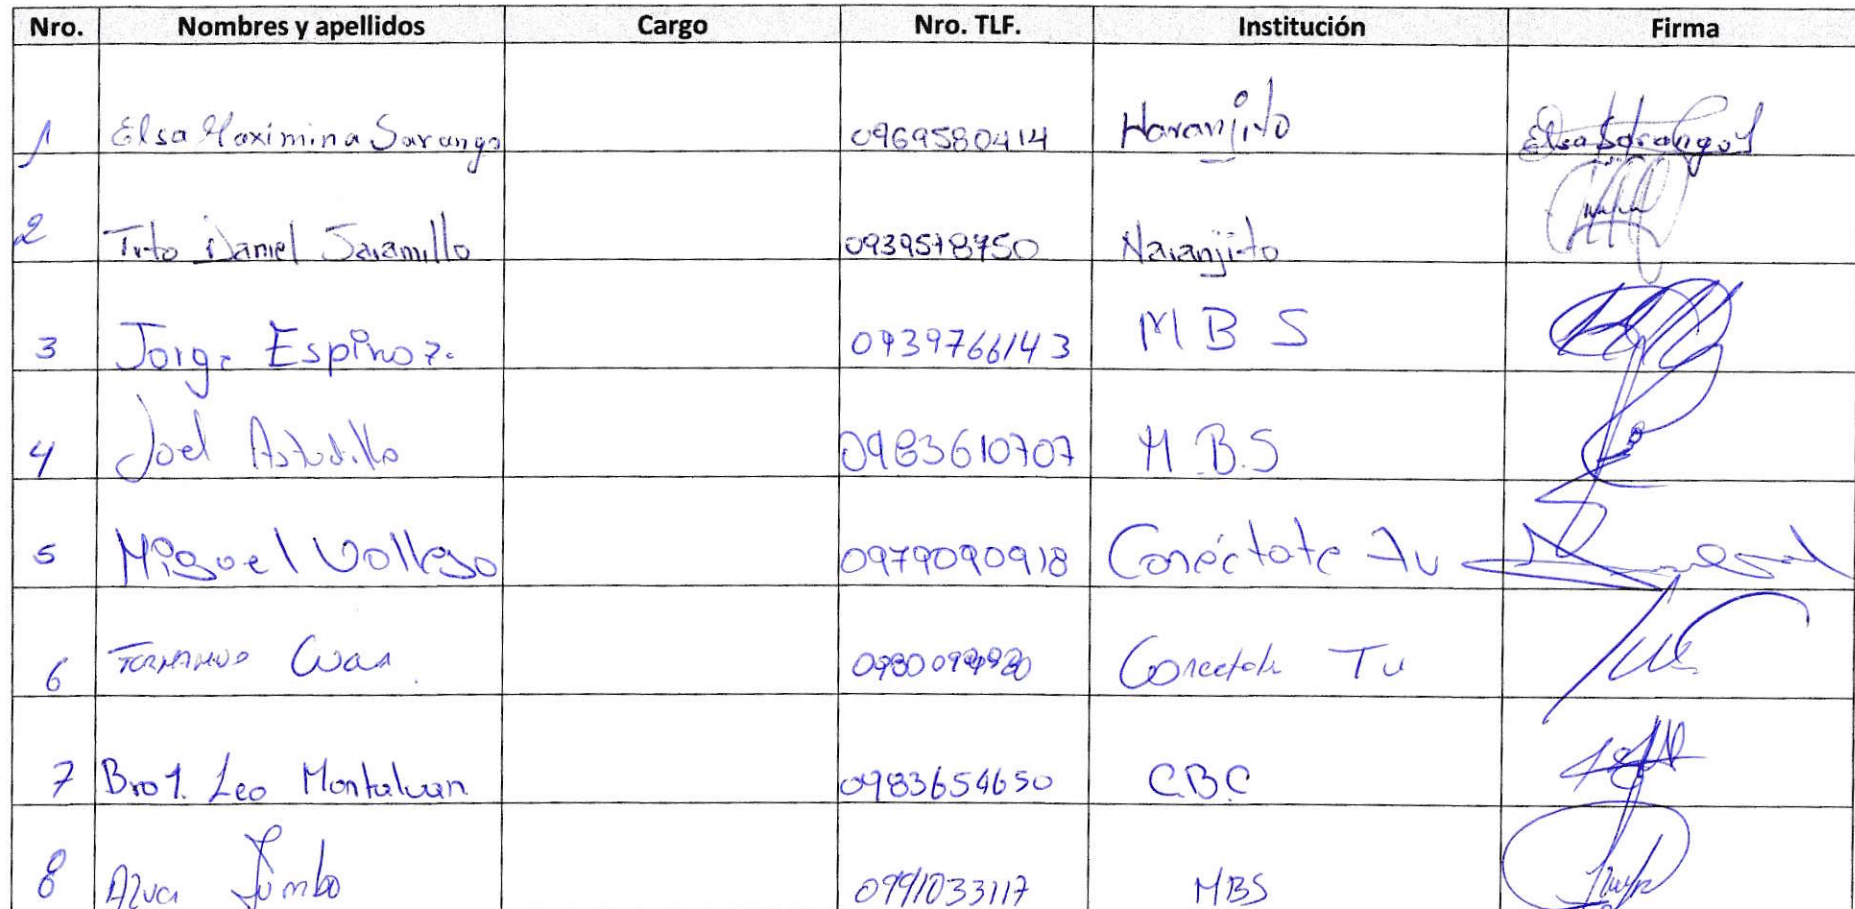 Nro. Nombres y apellidos Cargo Nro. TLF. Institución Firma
1 Elsa Maximina Sarango 0969580414 Naranjito Elsa Sarango
2 Tito Daniel Jaramillo 0939578750 Naranjito
3 Jorge Espinoza 0939766143 M B S
4 Joel Astudillo 0983610707 M.B.S
5 Miguel Vallejo 0979090918 Conéctate Tu
6 Fernando Conectate Tu
7 Bro1. Leo Montalvan 0983654650 C.B.C
8 Jumbo 0991033117 MBS